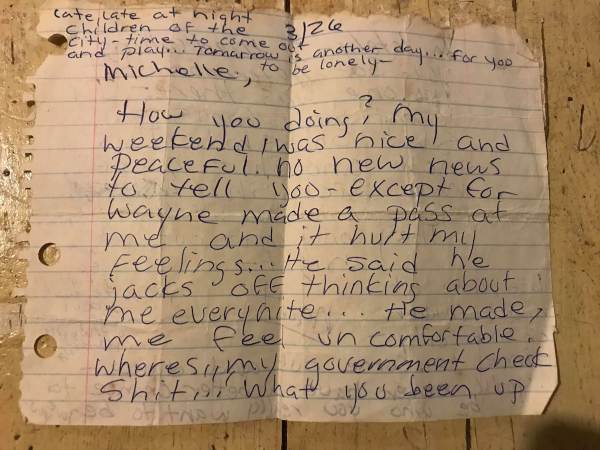 Late, late at night 3/26
children of the
City-time to come out
and play... Tomarrow is another day... for you
to be lonely-
Michelle,
How you doing? My
weekend, was nice, and
Peaceful. no new news
to tell you - except for
Wayne made a pass at
me and it hurt my
Feelings... He said he
jacks off thinking about
me everynite... He made,
me feel un comfortable.
wheres,, my government check
Shit,,, what you been up